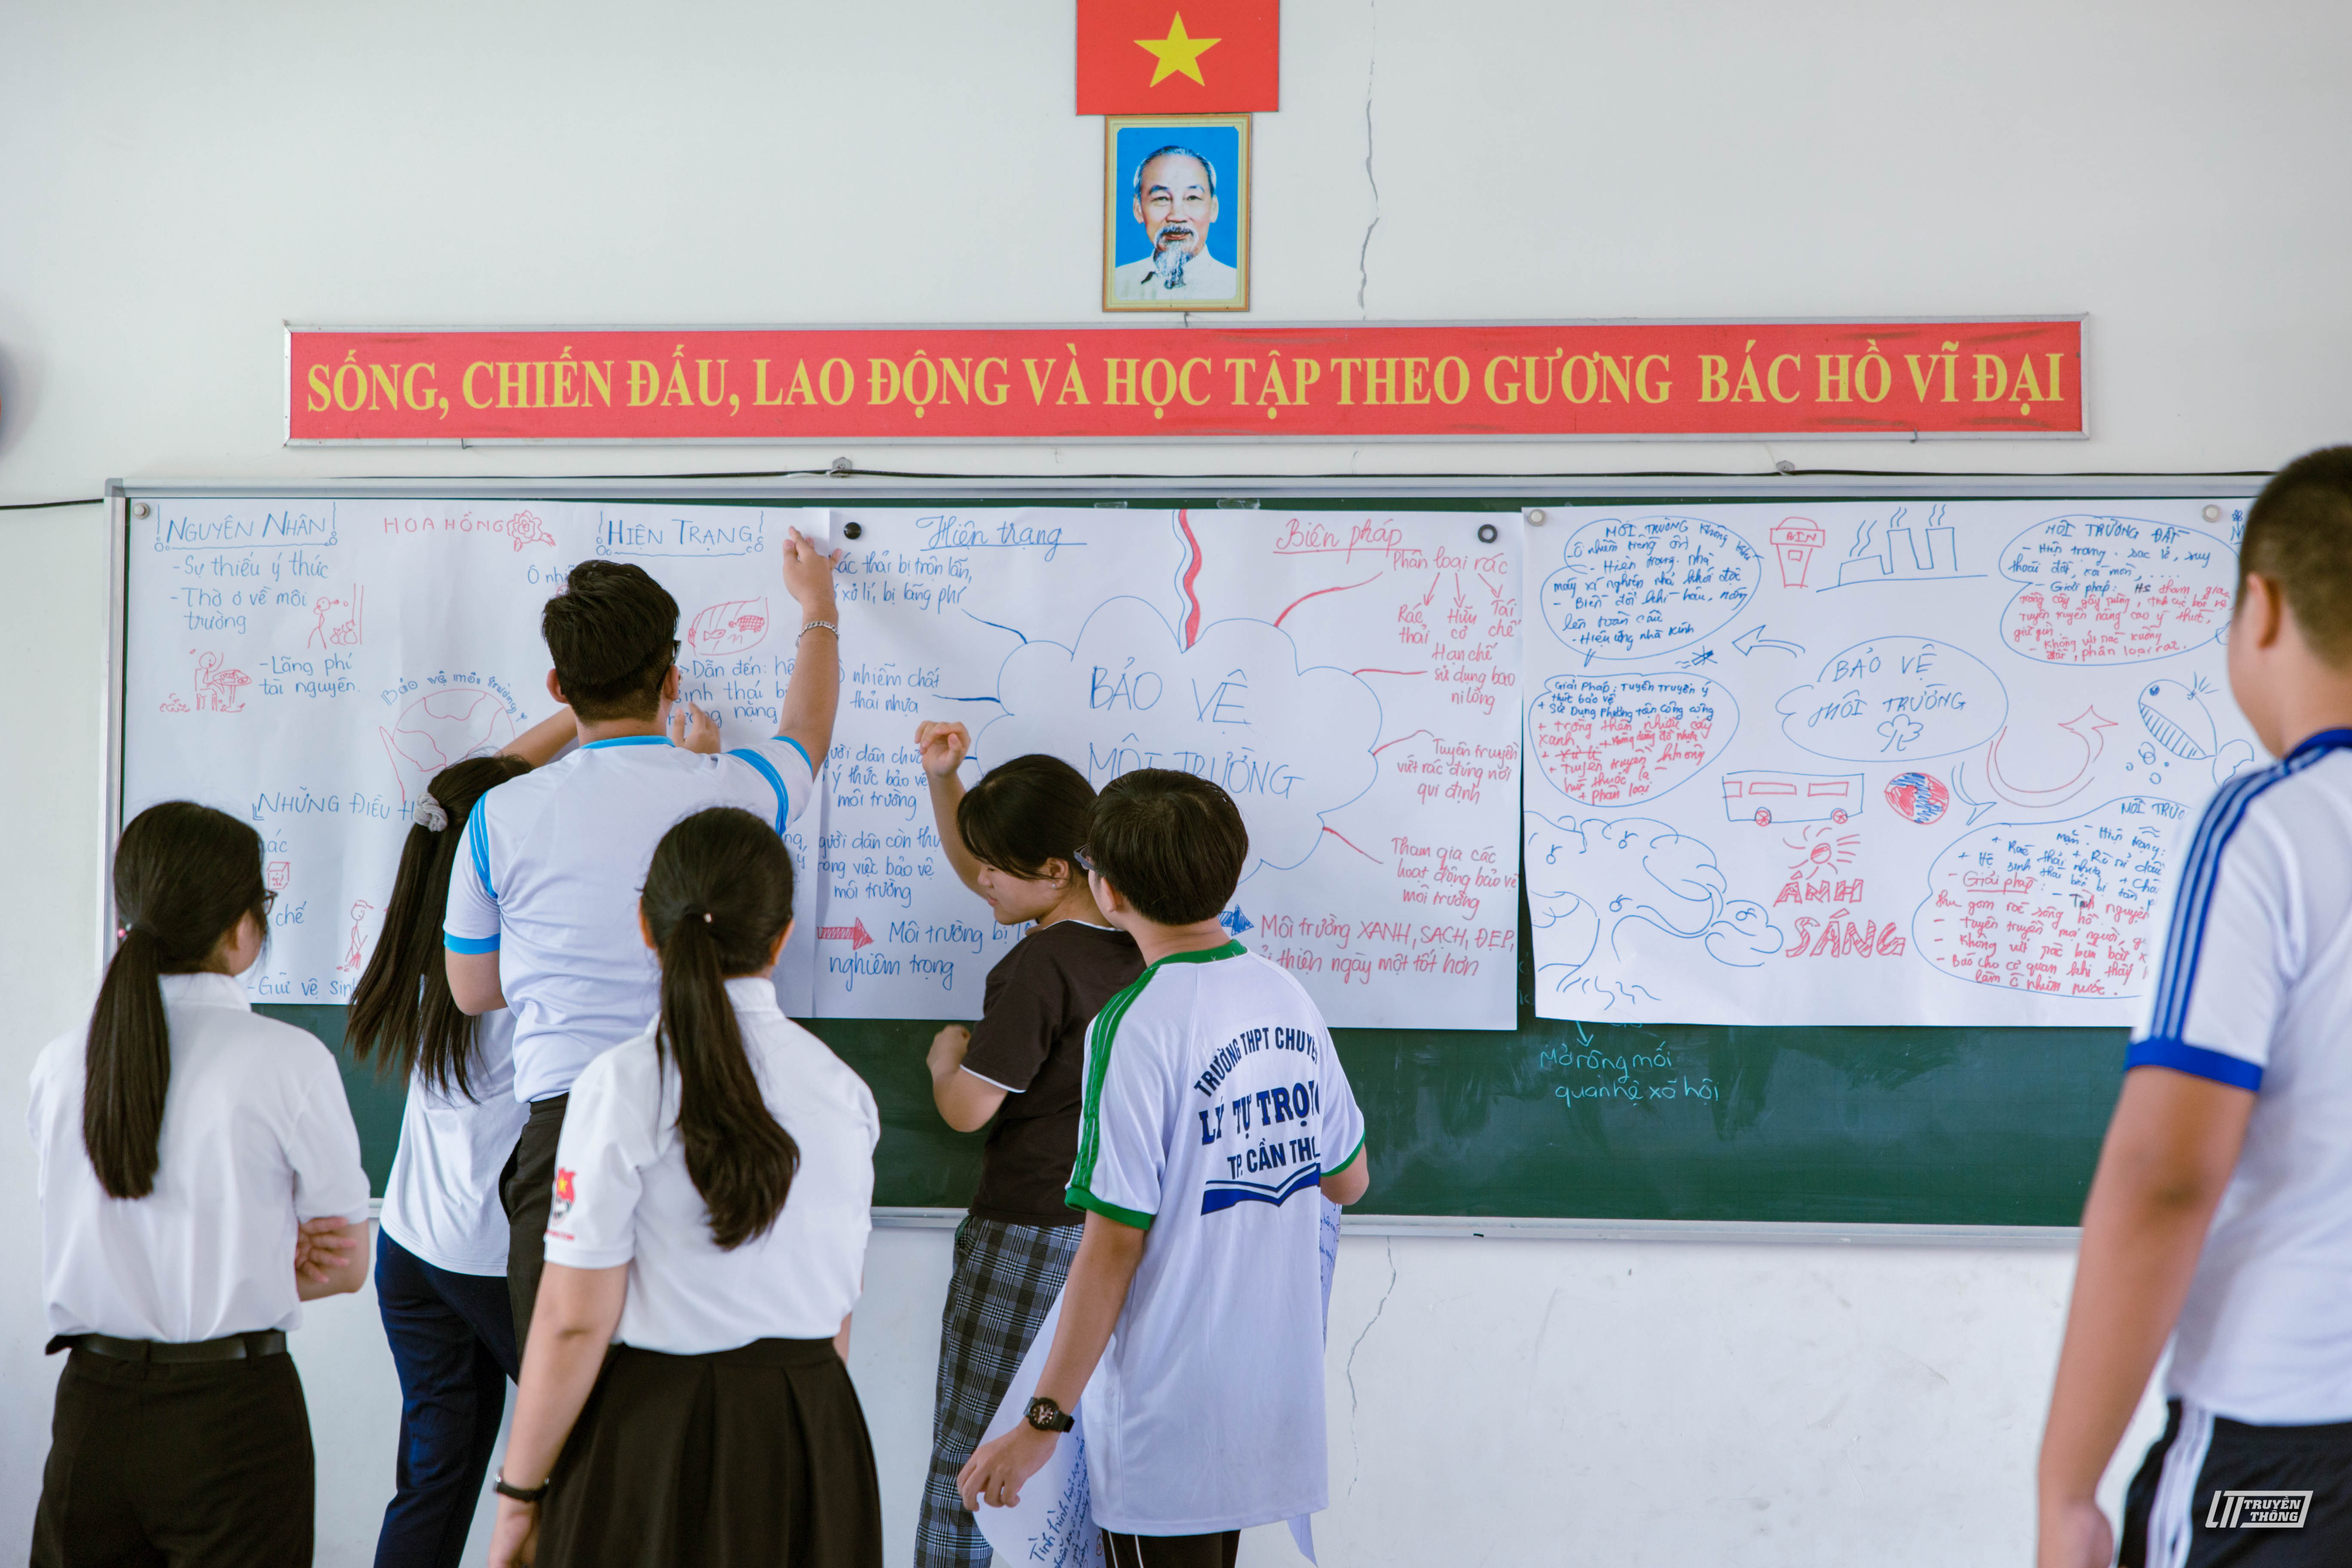 SỐNG, CHIẾN ĐẤU, LAO ĐỘNG VÀ HỌC TẬP THEO GƯƠNG BÁC HỒ VĨ ĐẠI
NGUYÊN NHÂN
- Sự thiếu ý thức
- Thờ ơ về môi
trường
- Lãng phí
tài nguyên.
HOA HỒNG
Bảo vệ môi trường
NHỮNG ĐIỀU
chế
- Giữ vệ sinh
HIỆN TRẠNG
Dẫn đến: hệ
sinh thái bị
nặng
Hiện trạng
ác thải bị trộn lẫn,
xử lí, bị lãng phí
nhiễm chất
thải nhựa
ười dân chưa
ý thức bảo vệ
môi trường
gười dân còn thụ
rong việc bảo vệ
môi trường
Môi trường bị
nghiêm trọng
BẢO VỆ
MÔI TRƯỜNG
Biện pháp
Phân loại rác
Rác
thải
Hữu
cơ
Tái
chế
Hạn chế
sử dụng bao
ni lông
Tuyên truyền
vứt rác đúng nơi
qui định
Tham gia các
hoạt động bảo vệ
môi trường
Môi trường XANH, SẠCH, ĐẸP,
thiện ngày một tốt hơn
MÔI TRƯỜNG không khí
Ô nhiễm tiếng ồn
- Hiện trạng: nhà
máy xí nghiệp nhả khói độc
- Biến đổi khí hậu, nóng
lên toàn cầu
- Hiệu ứng nhà kính
Giải pháp: Tuyên truyền ý
thức bảo vệ
+ Sử dụng phương tiện công cộng
+ trồng thêm nhiều cây
xanh
+ Tuyên truyền không
hút thuốc lá
+ phân loại
BIN
BẢO VỆ
MÔI TRƯỜNG
ÁNH
SÁNG
MÔI TRƯỜNG ĐẤT
- Hiện trạng: sạc lở, suy
thoái đất, xói mòn, ...
- Giải pháp: HS tham gia
trồng cây gây rừng, tích cực bảo vệ
tuyên truyền nâng cao ý thức,
giữ gìn
- Không vứt rác xuống
đất, phân loại rác.
MÔI TRƯỜ
+ Rác thải nhựa + Rò rỉ dầu
+ Hệ sinh thái biển bị tàn p
- Giải pháp: - Tình nguyện
thu gom rác sông hồ
- Tuyên truyền mọi người
- Không vứt rác bừa bãi
- Báo cho cơ quan khi thấy
làm ô nhiễm nước.
Mở rộng mối
quan hệ xã hội
TRƯỜNG THPT CHUYÊ
LÝ TỰ TRỌN
TP. CẦN THƠ
Tình hình
TRUYỀN
THÔNG